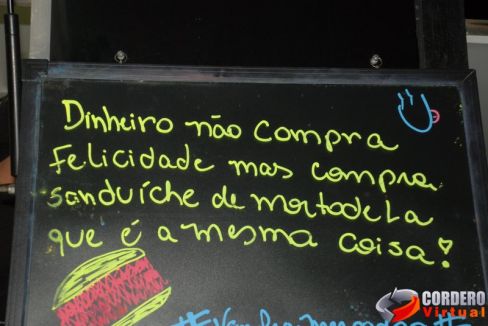 Dinheiro não compra
felicidade mas compra
sanduíche de mortadela
que é a mesma coisa!
CORDERO
Virtual